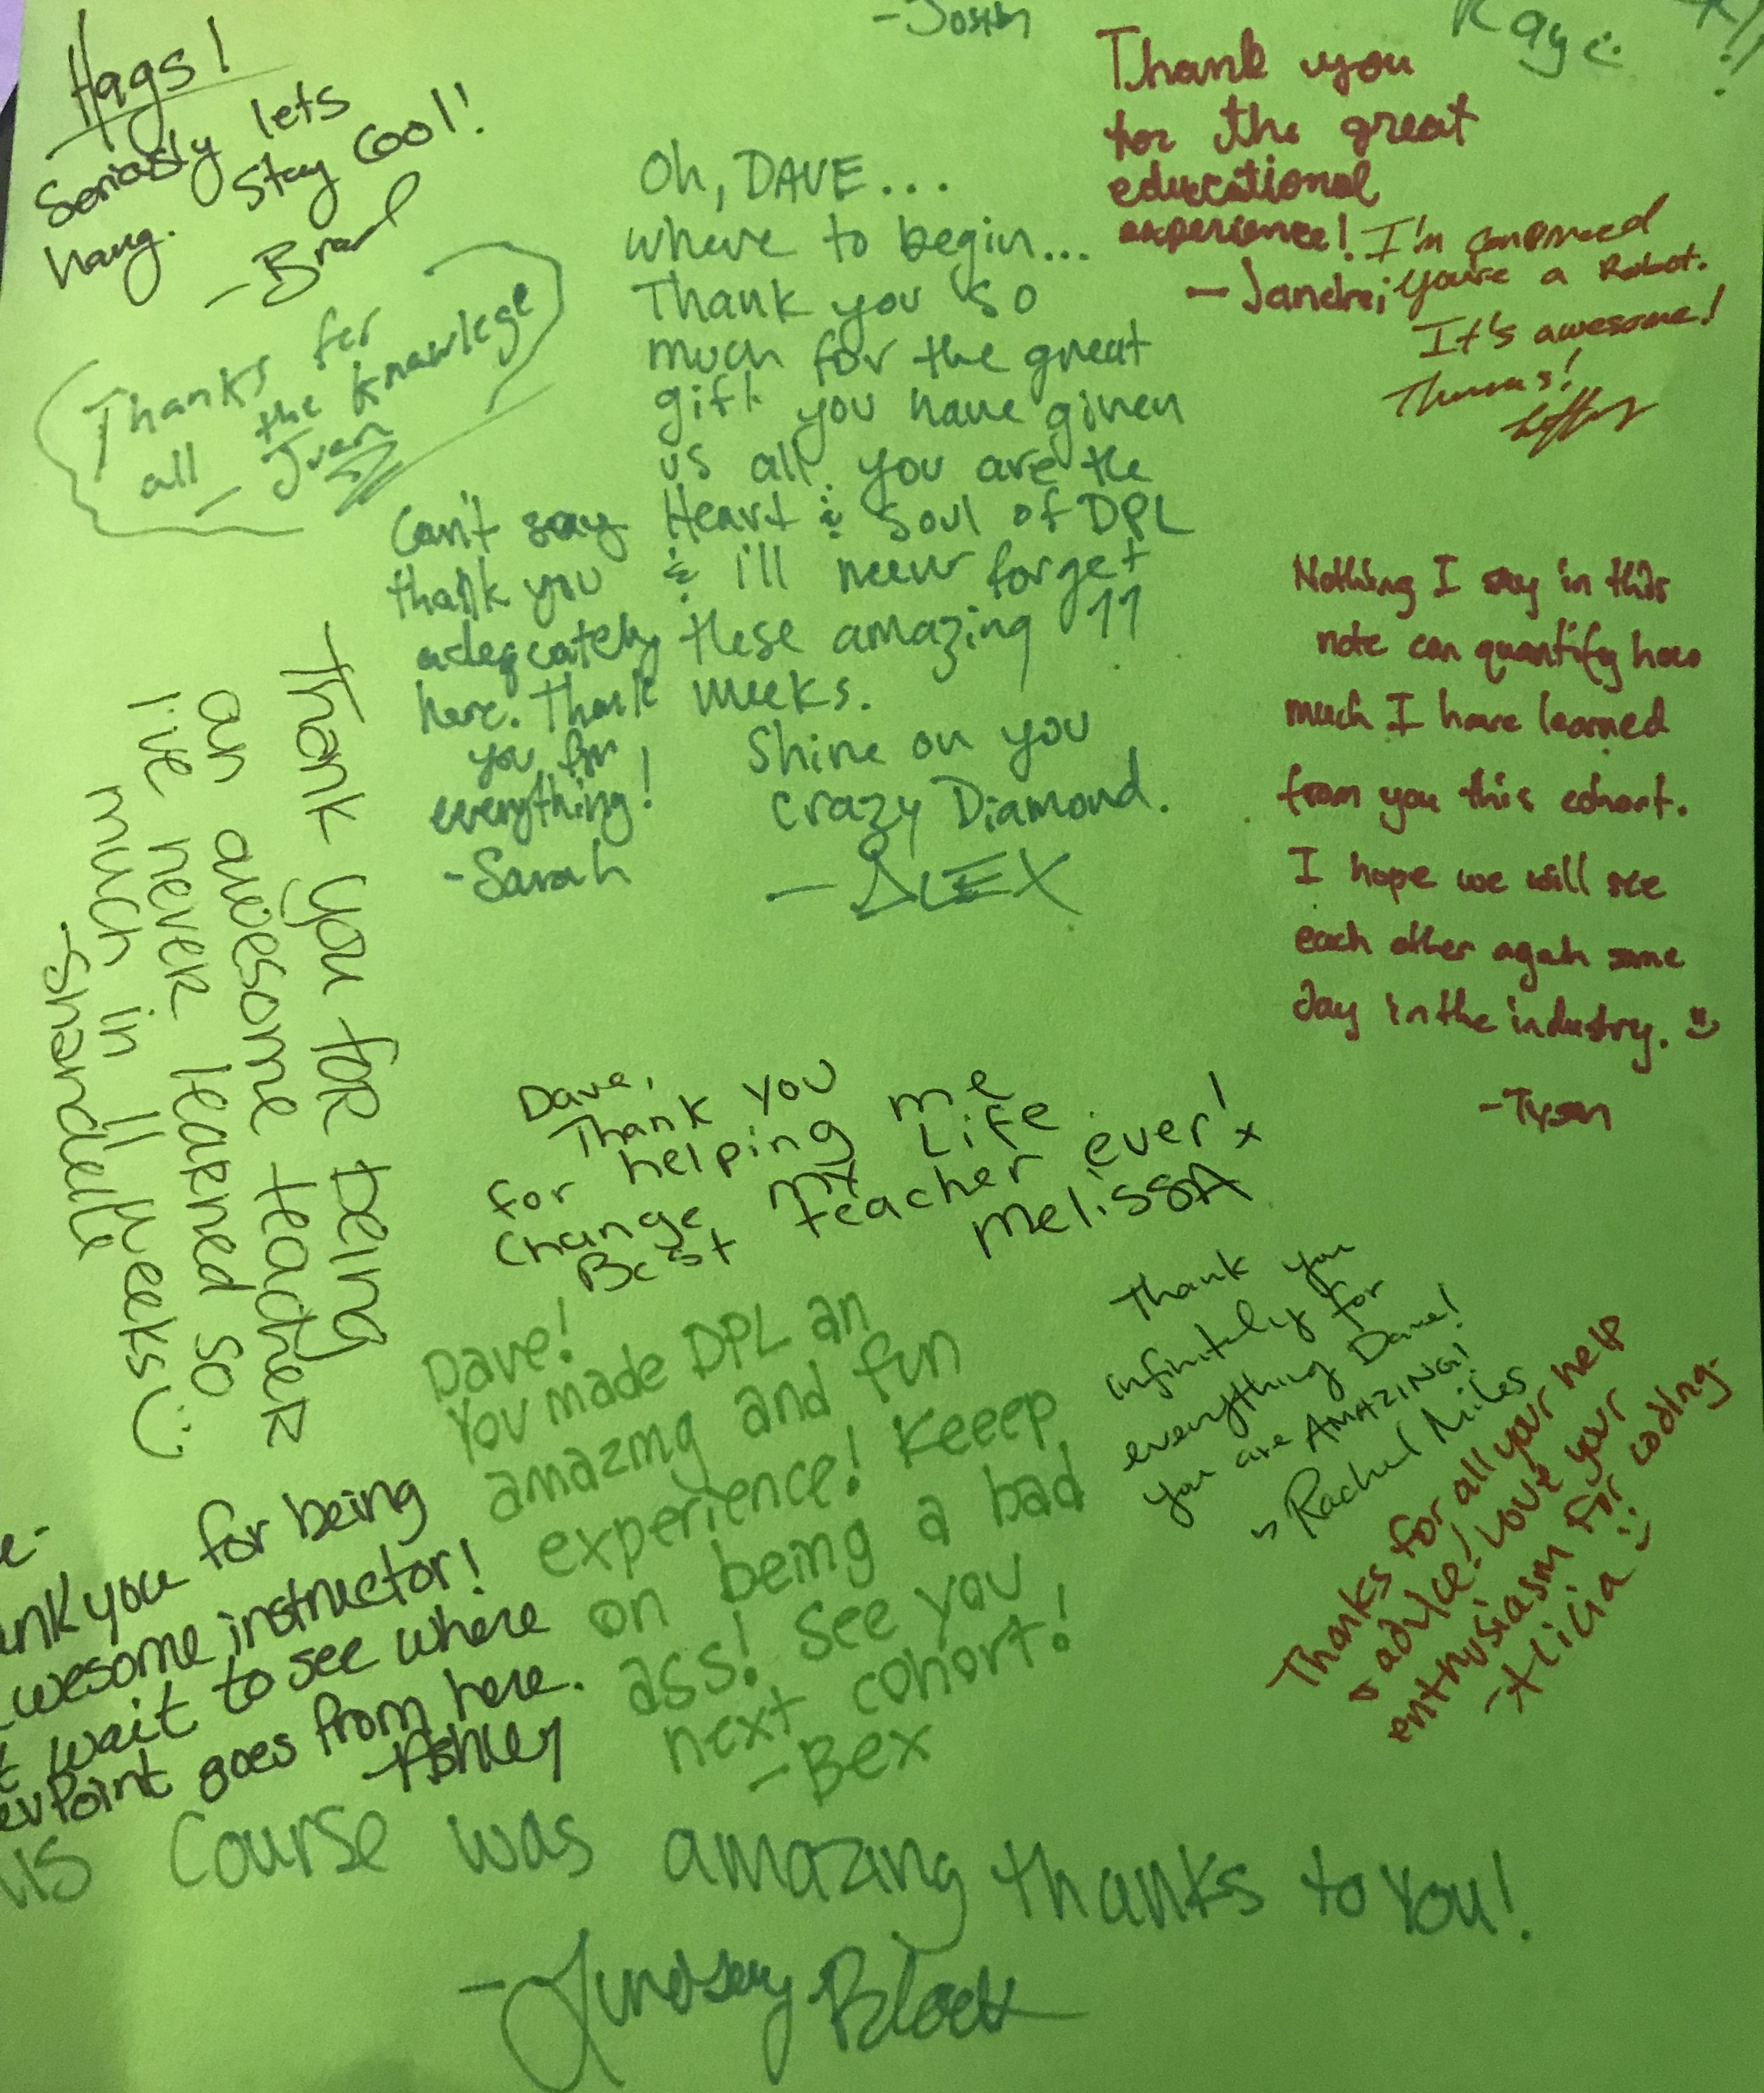 -Josh
Kay
Hags!
Seriously lets
hang. Stay Cool!
-Brad
Thanks for
all the knowlege
- Juan
Oh, DAVE...
where to begin...
Thank you so
much for the great
gift you have given
us all. you are the
Heart & Soul of DPL
& i'll never forget
these amazing 11
weeks.
Shine on you
crazy Diamond.
- ALEX
Thank you
for the great
educational
experience!
- Jandri
I'm convinced
you're a Robot.
It's awesome!
Can't say
thank you
adeqcately
here. Thank
you for
everything!
-Sarah
Nothing I say in this
note can quantify how
much I have learned
from you this cohort.
I hope we will see
each other again some
day in the industry.
-Tyson
Thank you for being
an awesome teacher
I've never learned so
much in 11 weeks
-Shandelle
Dave,
Thank You
for helping me
Change my Life.
Best teacher ever!
x
MelissA
Dave!
You made DPL an
amazing and fun
experience! Keeep
on being a bad
ass! See you
next cohort!
-Bex
Thank you
infinitely for
everything Dave!
you are AMAZING!
Rachel Miles
Thanks for all your help
& advice! Love your
enthusiasm for coding.
-Alicia
ank you for being
wesome instructor!
t wait to see where
evPoint goes from here.
-Ashley
is Course was amazing thanks to You!
-Lindsay Block